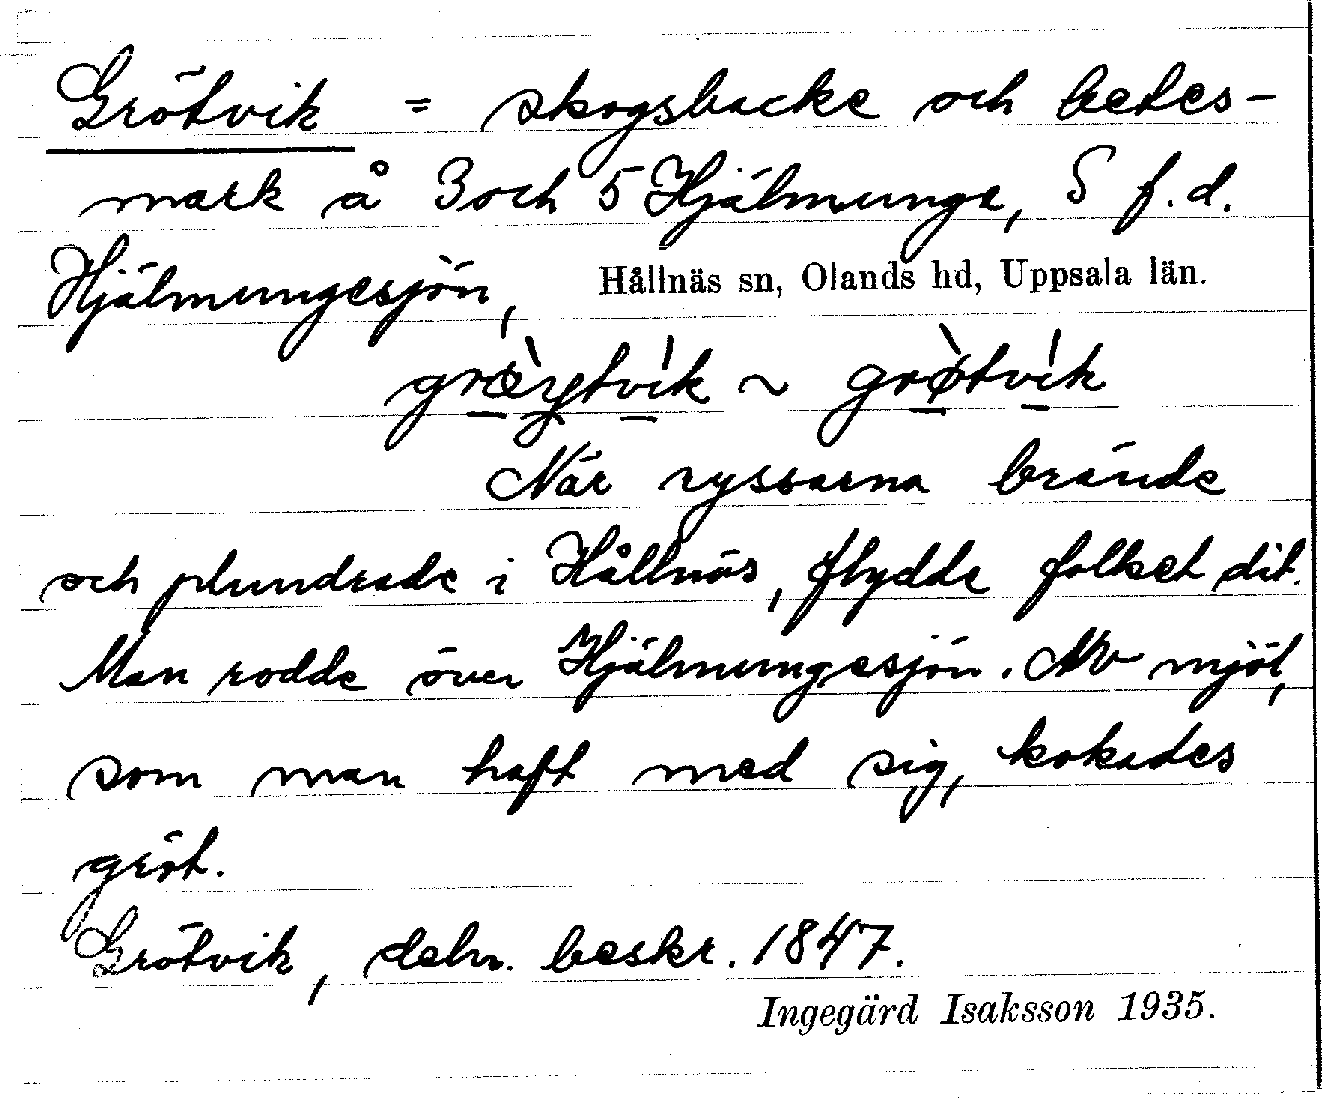 Grötvik = skogsbacke och betes-
mark å 3 och 5 Hjälmunge, S f.d.
Hjälmungesjön, Hållnäs sn, Olands hd, Uppsala län.
græ̀ytvík ~ grø̀tvík
När ryssarna brände
och plundrade i Hållnäs, flydde folket dit.
Man rodde över Hjälmungesjön. Av mjöl,
som man haft med sig, kokades
gröt.
Grötvik, deln. beskr. 1847.
Ingegärd Isaksson 1935.